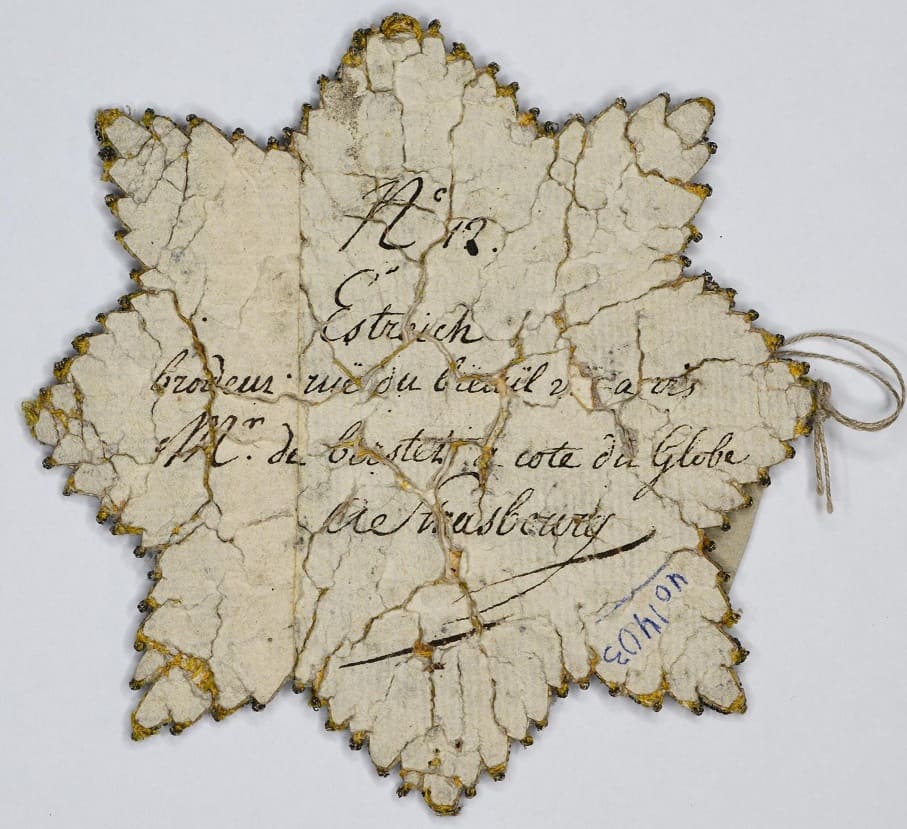 N.º 12.
Estreich
brodeur ruë du vis a vis
Mr. de a cote du Globe
a Strasbourg
40/1403